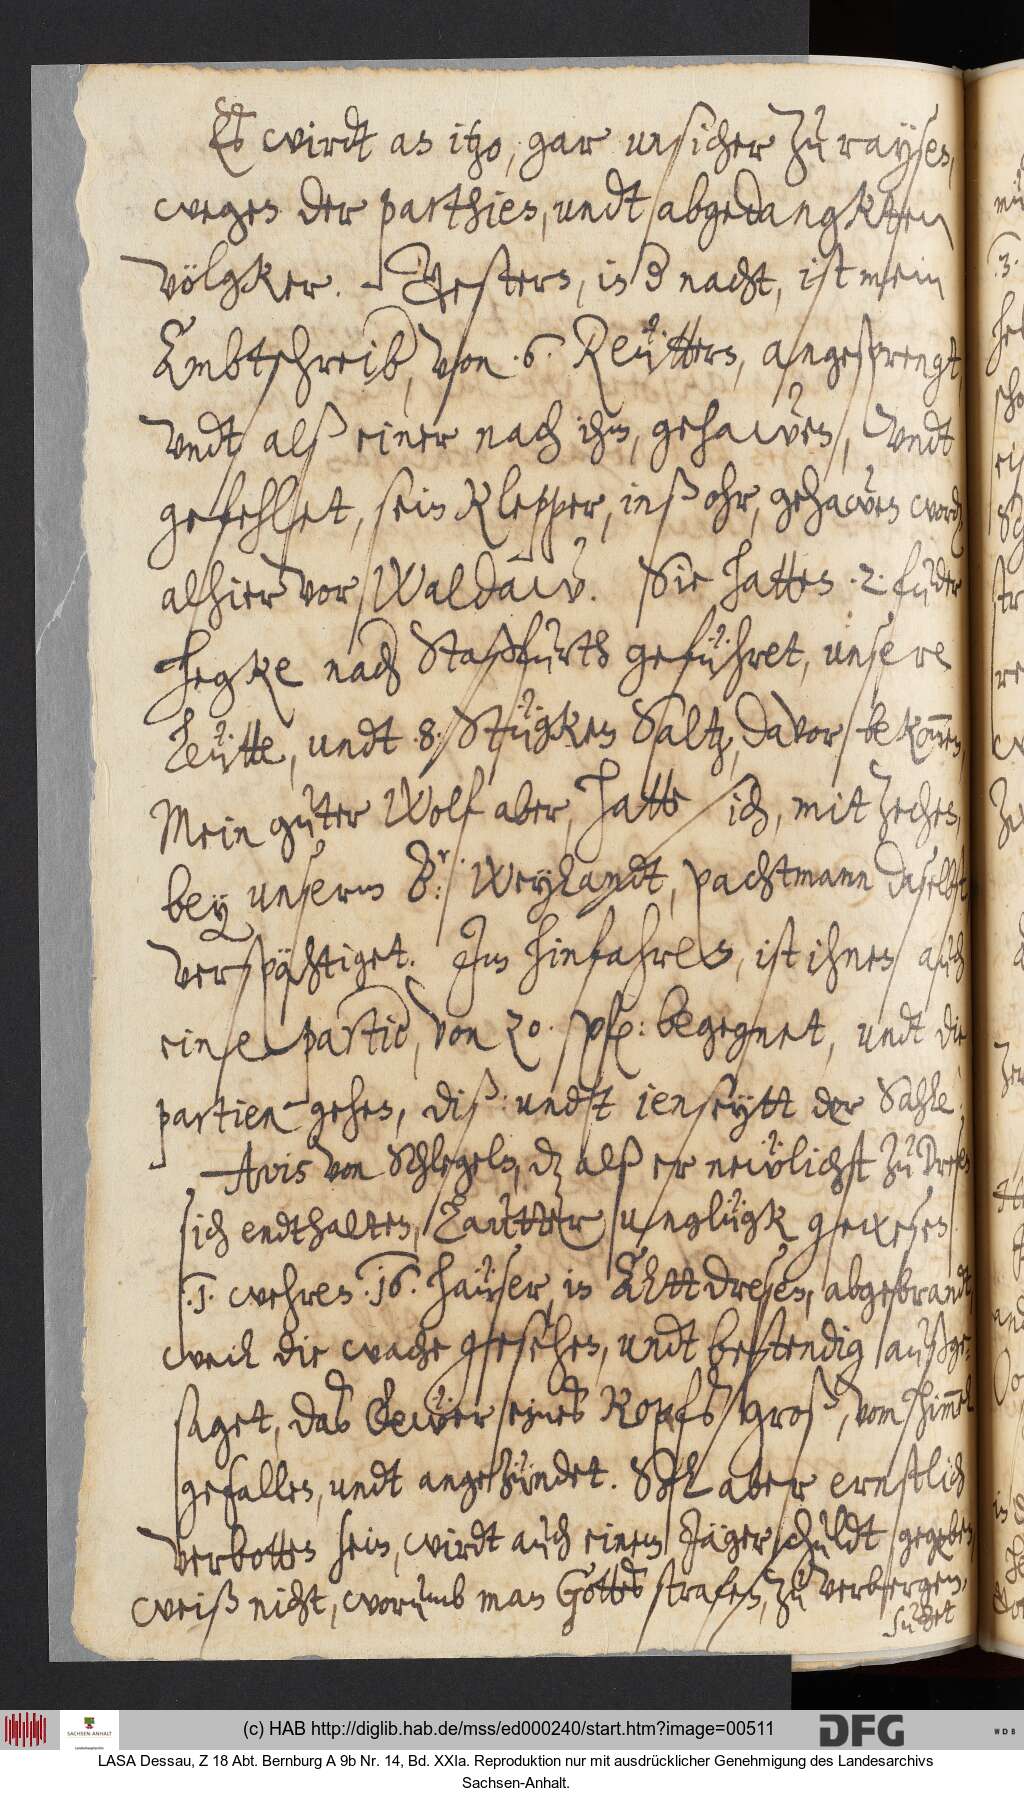 Es wirdt an itzo, gar unsicher zu raysen,
wegen der parthien, undt abgedangkten
völgker. Gestern, in d nacht, ist mein
Ambtschreib, von .6. Reüttern, angesprengt,
Undt alß einer nach ihm, gehawen, undt
gefehlet, sein Klepper, inß ohr, gehawen word
alhier vor Waldaw. Sie hatten .2. fuder
hegke nach Staßfurth geführet, unsere
Leütte, undt .8. Stügken Saltz, davor bekommen
Mein guter Wolf aber, hatte sich, mit zechen,
bey unserm Dr: Weylandt, pachtmann daselbst
verspähtiget. Im hinfahren, ist ihnen auch
eine partie, von 20. pf: begegnet, undt die
partien gehen, diß: undt jenseytt der Sahle.
Avis von Schlegeln, dz alß er newlichst zu Dresen
sich endthalten, Lautter unglügk gewesen
.1. wehren .16. haüser, in Altt dresen, abgebrandt,
weil die wache gesehen, undt bestendig außge-
saget, das Fewer eines Kopfs groß, vom himmel
gefallen, undt angezündet. Sol aber ernstlich
verbotten sein, wirdt auch einem Jäger schuldt gegeben
weiß nicht, worumb man Gottes strafen, zu verbergen,
suchet
(c) HAB http://diglib.hab.de/mss/ed000240/start.htm?image=00511
DFG
WDB
SACHSEN-ANHALT
Landesarchiv
LASA Dessau, Z 18 Abt. Bernburg A 9b Nr. 14, Bd. XXIa. Reproduktion nur mit ausdrücklicher Genehmigung des Landesarchivs
Sachsen-Anhalt.